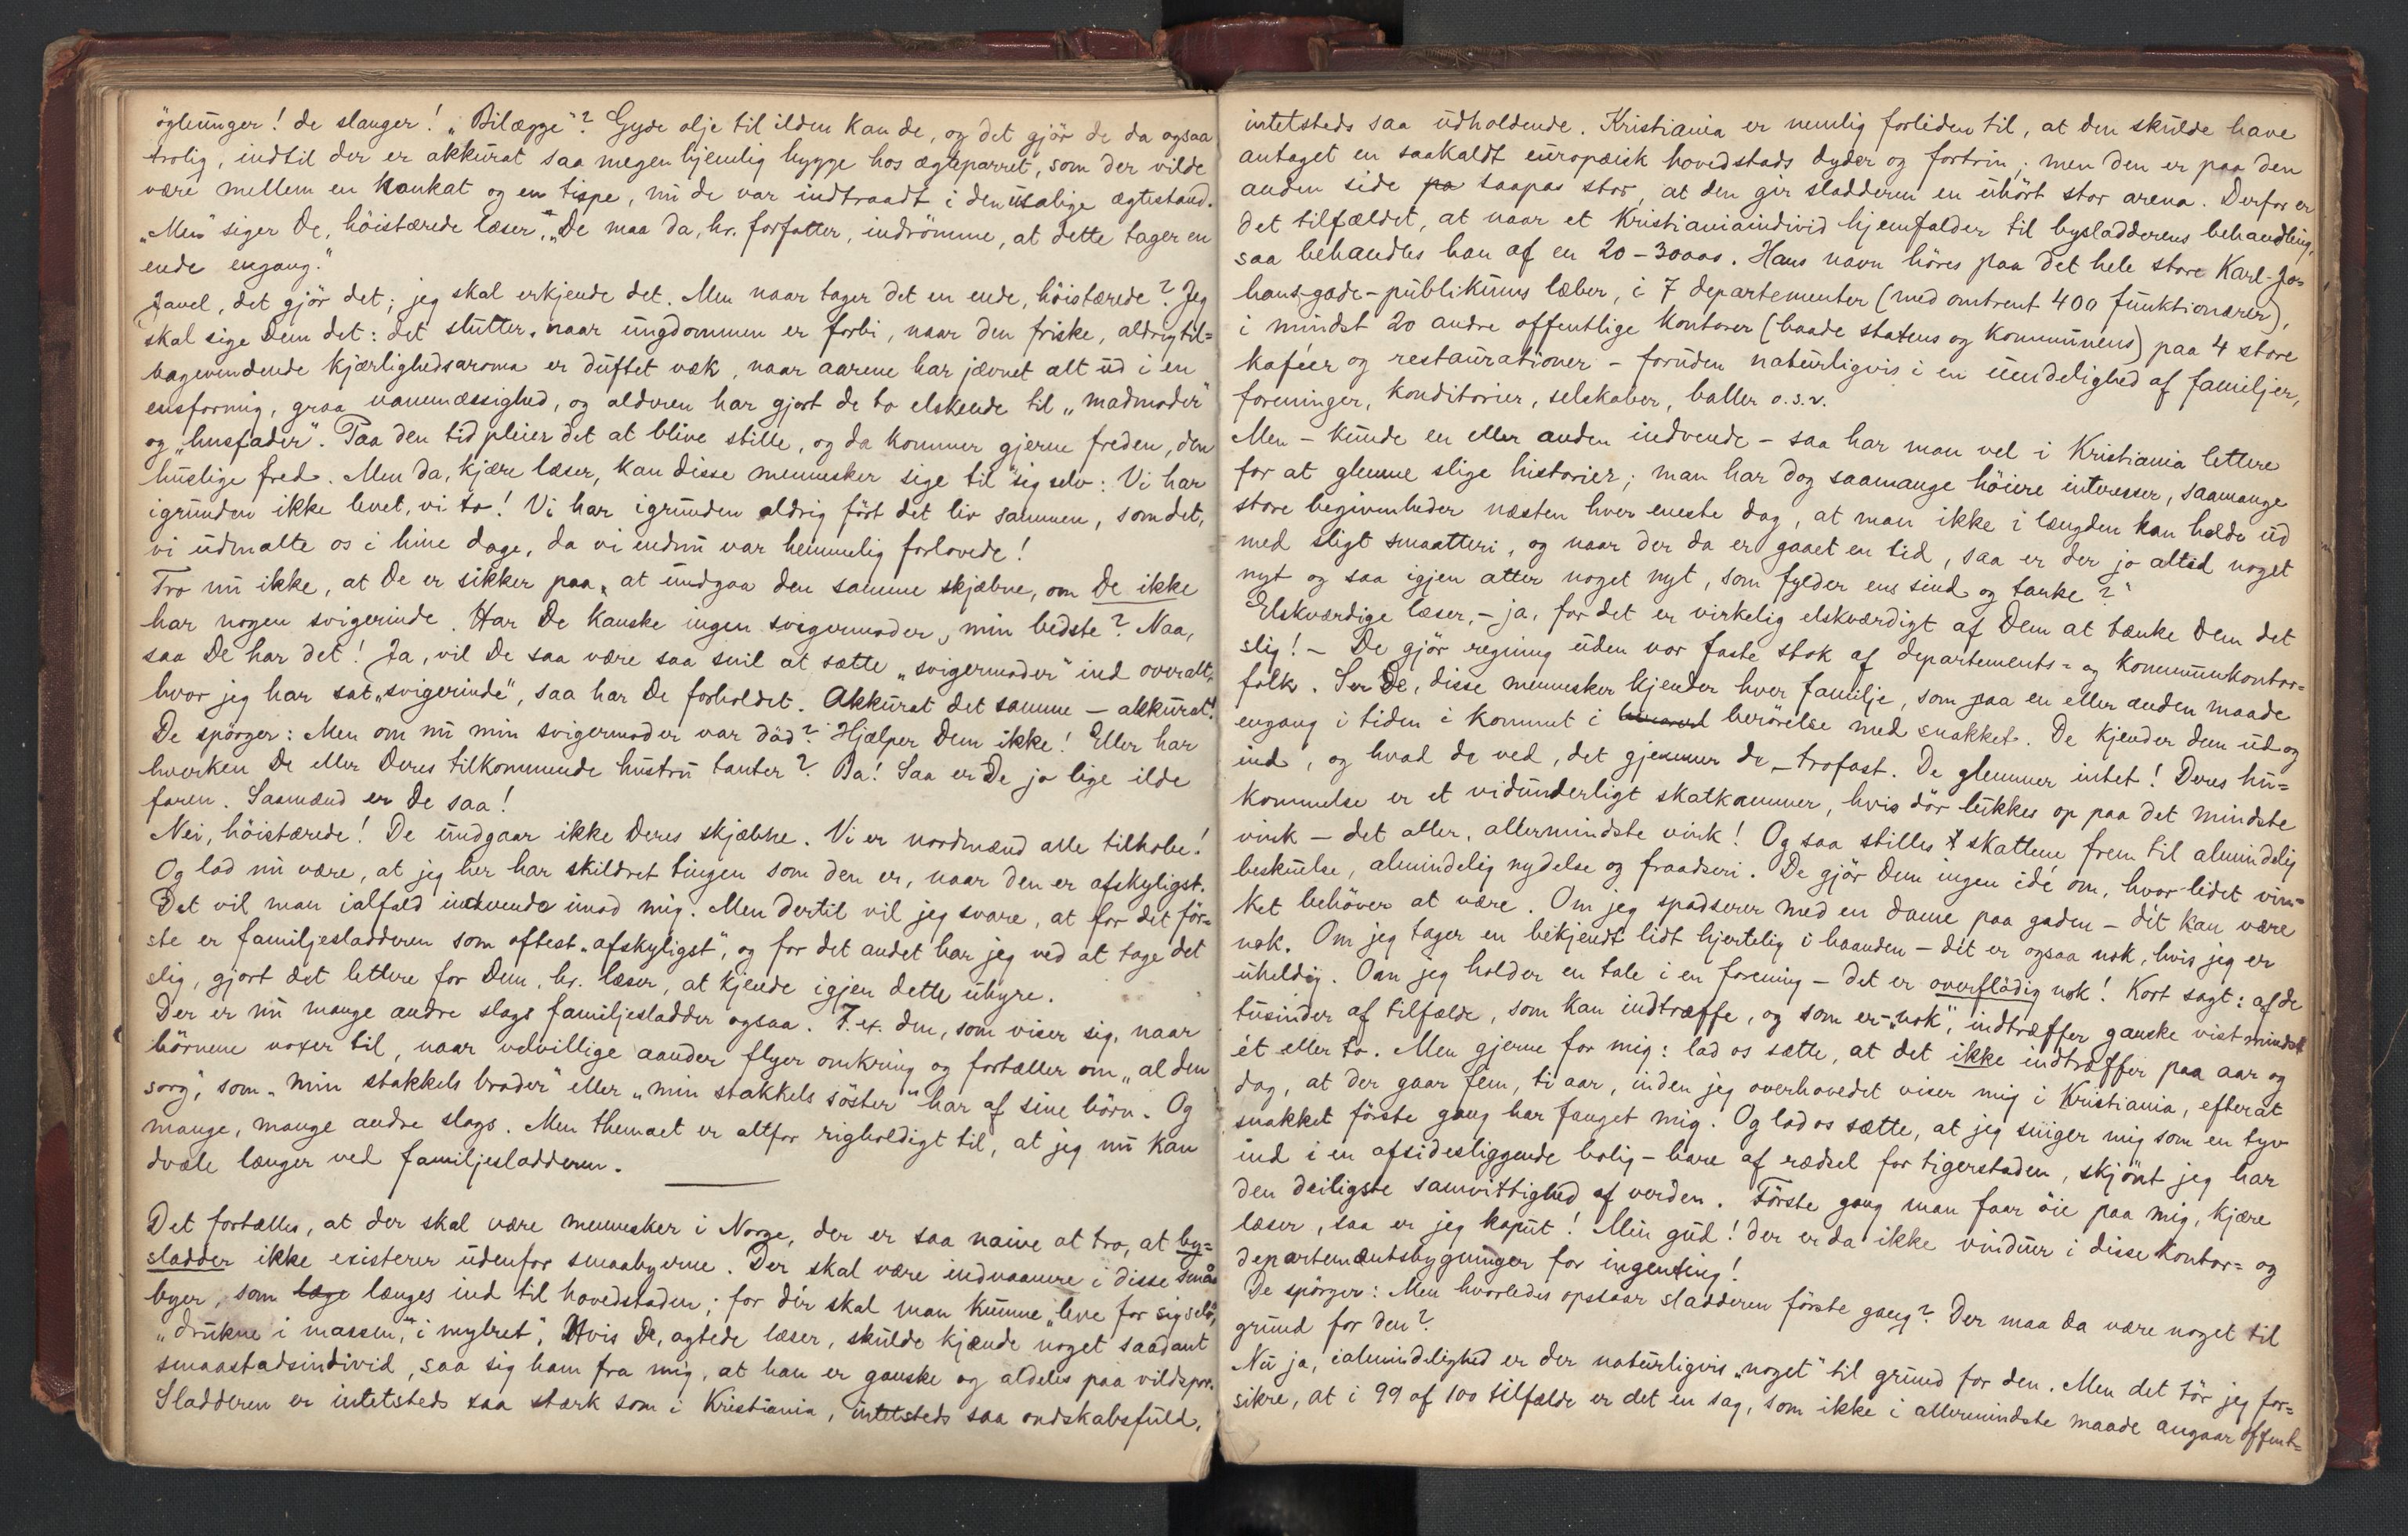 ögleunger! de slanger! „Bilægge"? Gyde olje til ilden kan de, og det gjör de da ogsaa
trolig, indtil der er akkurat saa megen hjemlig hygge hos ægteparret, som der vilde
være mellem en hankat og en tispe, nu de var indtraadt i den usalige ægtestand.
„Men" siger De, höistærede læser, „De maa da, hr. forfatter, indrömme, at dette tager en
ende engang."
Javel, det gjör det; jeg skal erkjende det. Men naar tager det en ende, höistærede? Jeg
skal sige Dem det: det slutter, naar ungdommen er forbi, naar den friske, aldrig til=
bagevendende kjærlighedsaroma er duftet væk, naar aarene har jævnet alt ud i en
ensformig, graa vanemæssighed, og alderen har gjort de to elskende til „madmoder"
og „husfader". Paa den tid pleier det at blive stille, og da kommer gjerne freden, den
huslige fred. Men da, kjære læser, kan disse mennesker sige til sig selv: Vi har
igrunden ikke levet, vi to! Vi har igrunden aldrig fört det liv sammen, som det,
vi udmalte os i hine dage, da vi endnu var hemmelig forlovede!
Tro nu ikke, at De er sikker paa, at undgaa den samme skjæbne, om De ikke
har nogen svigerinde. Har De kanske ingen svigermoder, min bedste? Naa,
saa De har det! Ja, vil De saa være saa snil at sætte „svigermoder" ind overalt,
hvor jeg har sat „svigerinde", saa har De forholdet. Akkurat det samme – akkurat!
De spörger: Men om nu min svigermoder var död? Hjælper Dem ikke! Eller har
hverken De eller Deres tilkommende hustru tanter? Ja! Saa er De jo lige ilde
faren. Saamænd er De saa!
Nei, höistærede! De undgaar ikke Deres skjæbne. Vi er nordmænd alle tilhobe!
Og lad nu være, at jeg her har skildret tingen som den er, naar den er afskyligst.
Det vil man ialfald indvende imod mig. Men dertil vil jeg svare, at for det för=
ste er familjesladderen som oftest „afskyligst", og for det andet har jeg ved at tage det
slig, gjort det lettere for Dem, hr. læser, at kjende igjen dette uhyre.
Der er nu mange andre slags familjesladder ogsaa. T. ex. den, som viser sig, naar
börnene voxer til, naar velvillige aander flyer omkring og fortæller om „al den
sorg", som „min stakkels broder" eller „min stakkels söster" har af sine börn. Og
mange, mange andre slags. Men themaet er altfor righoldigt til, at jeg nu kan
dvæle længer ved familjesladderen.
Det fortælles, at der skal være mennesker i Norge, der er saa naive at tro, at by=
sladder ikke existerer udenfor smaabyerne. Der skal være indvaanere i disse små
byer, som læge længes ind til hovedstaden; for dér skal man kunne „leve for sig selv",
„drukne i massen", „i mylret". Hvis De, agtede læser, skulde kjende noget saadant
smaastadsindivid, saa sig ham fra mig, at han er ganske og aldeles paa vildspor.
Sladderen er intetsteds saa stærk som i Kristiania, intetsteds saa ondskabsfuld,
intetsteds saa udholdende. Kristiania er nemlig forliden til, at den skulde have
antaget en saakaldt europæisk hovedstads dyder og fortrin; men den er paa den
anden side pa saapas stor, at den gir sladderen en uhört stor arena. Derfor er
det tilfældet, at naar et Kristianiaindivid hjemfalder til bysladderens behandling,
saa behandles han af en 20–30000. Hans navn höres paa det hele store Karl-Jo=
hans-gade-publikums læber, i 7 departementer (med omtrent 400 funktionærer),
i mindst 20 andre offentlige kontorer (baade statens og kommunens) paa 4 store
kaféer og restaurationer – foruden naturligvis i en uendelighed af familjer,
foreninger, konditorier, selskaber, baller o.s.v.
Men – kunde en eller anden indvende – saa har man vel i Kristiania lettere
for at glemme slige historier; man har dog saamange höiere interesser, saamange
store begivenheder næsten hver eneste dag, at man ikke i længden kan holde ud
med sligt smaatteri, og naar der da er gaaet en tid, saa er der jo altid noget
nyt og saa igjen atter noget nyt, som fylder ens sind og tanke?"
Elskværdige læser, – ja, for det er virkelig elskværdigt af Dem at tænke Dem det
slig! – De gjör regning uden vor faste stok af departements= og kommunekontor=
folk. Ser De, disse mennesker kjender hver familje, som paa en eller anden maade
engang i tiden i kommet i berörelse med snakket. De kjender dem ud og
ind, og hvad de ved, det gjemmer de – trofast. De glemmer intet! Deres hu=
kommelse er et vidunderligt skatkammer, hvis dör lukkes op paa det mindste
vink – det aller, allermindste vink! Og saa stilles skattene frem til almindelig
beskuelse, almindelig nydelse og fraadseri. De gjör Dem ingen idé om, hvor lidet vin=
ket behöver at være. Om jeg spadserer med en dame paa gaden – dét kan være
nok. Om jeg tager en bekjendt lidt hjertelig i haanden – dét er ogsaa nok, hvis jeg er
uheldig. Om jeg holder en tale i en forening – det er overflödig nok! Kort sagt: af de
tusinder af tilfælde, som kan indtræffe, og som er „nok", indtræffer ganske vist mindst
ét eller to. Men gjerne for mig: lad os sætte, at det ikke indtræffer paa aar og
dag, at der gaar fem, ti aar, inden jeg overhovedet viser mig i Kristiania, efterat
snakket förste gang har fanget mig. Og lad os sætte, at jeg sniger mig som en tyv
ind i en afsidesliggende bolig – bare af rædsel for tigerstaden, skjönt jeg har
den deiligste samvittighed af verden. Förste gang man faar öie paa mig, kjære
læser, saa er jeg kaput! Min gud! der er da ikke vinduer i disse kontor= og
departementsbygninger for ingenting!
De spörger: Men hvorledes opstaar sladderen förste gang? Der maa da være noget til
grund for den?
Nu ja, ialmindelighed er der naturligvis „noget" til grund for den. Men det tör jeg for=
sikre, at i 99 af 100 tilfælde er det en sag, som ikke i allermindste maade angaar offent=